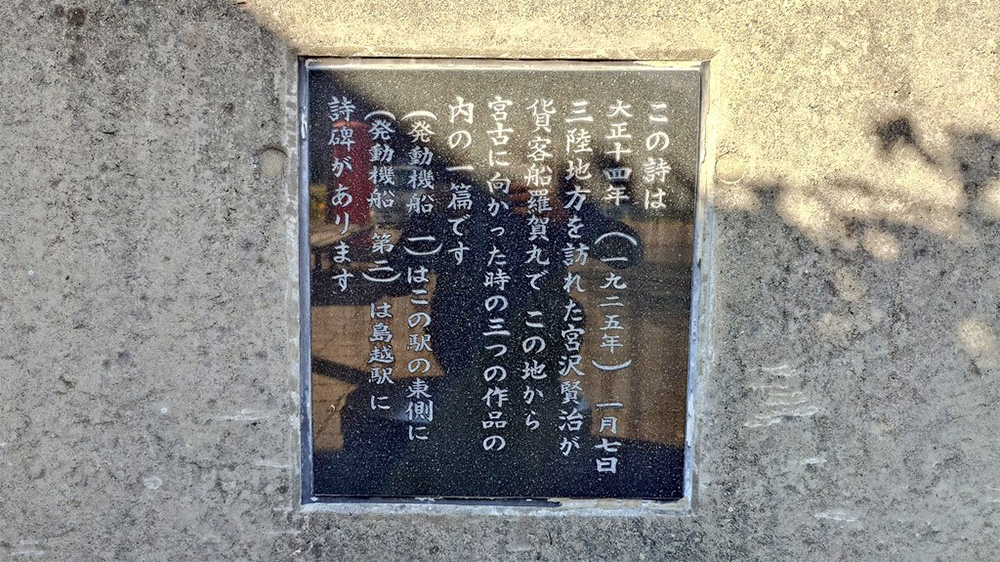 この詩は
大正十四年（一九二五年） 一月七日
三陸地方を訪れた宮沢賢治が
貨客船羅賀丸で この地から
宮古に向かった時の三つの作品の
内の一篇です
（発動機船 一）はこの駅の東側に
（発動機船 第二）は島越駅に
詩碑があります